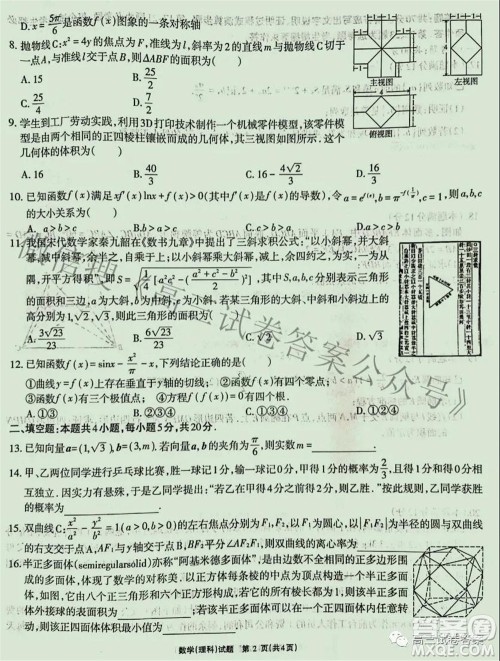 D. x=5π/6 是函数f(x)图象的一条对称轴
8. 抛物线C:x²=4y的焦点为F,准线为l,斜率为2的直线m与抛物线C切于
一点A,与准线l交于点B,则△ABF的面积为( )
A. 15 B. 25/2
C. 25/4 D. 7/2
主视图 左视图
9. 学生到工厂劳动实践,利用3D打印技术制作一个机械零件模型,该零件模
型是由两个相同的正四棱柱镶嵌而成的几何体,其三视图如图所示.这
个几何体的体积为( )
俯视图
A. 16 B. 40/3 C. 16-4√2/3 D. 16/3
10. 已知函数f(x)满足xf′(x)lnx+f(x)>0(其中f′(x)是f(x)的导数),令
的大小关系为( )
A. a>b>c
11. 我国宋代数学家秦九韶在《数书九章》中提出了三斜求积公式:"以小斜幂,并大斜
幂,减中斜幂,余半之,自乘于上;以小斜幂乘大斜幂,减上,余四约之,为实;一为从
隅,开平方得积".即S=√(1/4[a²c²-((a²+c²-b²)/2)²],其中S,a,b,c分别表示三角形
的面积和三边,a为大斜,b为中斜,c为小斜.若某三角形的大斜、中斜和小斜边上的
高分别为1,√2,√3,则该三角形的面积为( )
A. 3√23/23 B. 6√23/23
12. 已知函数f(x)=sinx-x²/π-x,下列结论正确的是( )
①曲线y=f(x)上存在垂直于y轴的切线; ②函数f(x)有四个零点;
③函数f(x)有三个极值点; ④方程f(f(x))=0有四个根.
A. ①③ B. ②③ C. ①④ D. ②④
二、填空题:本题共4小题,每小题5分,共20分.
13. 已知向量a=(1,√3),b=(3,m).若向量a,b的夹角为π/6,则实数m=
14. 甲、乙两位同学进行乒乓球比赛,胜一球记1分,输一球记0分,甲得1分的概率为2/3,且得分和得0分相
互独立.因实力有悬殊,于是乙同学提出:"若乙在甲得4分之前得2分,则乙胜."按此规则,乙同学获胜
的概率为
15. 双曲线C:x²/a²-y²/b²=1(a>0,b>0)的左右焦点分别为F₁,F₂,以|F₁F₂|为半径的圆与双曲线
的右支交于点A,AF₁与y轴交于点B,BF₂平分∠AF₂F₁,则双曲线的离心率为
16. 半正多面体(semiregularsolid)亦称"阿基米德多面体",是由边数不全相同的正多边形围
成的多面体,体现了数学的对称美.以正方体每条棱的中点为顶点构造一个半正多面
体,如图,它由八个正三角形和六个正方形构成,若它的所有棱长都为1,则该半正多面
体外接球的表面积为 ;若该半正多面体可以在一个正四面体内任意转
动,则该正四面体体积最小值为
数学(理科)试题 第2页(共4页)
试卷答案公众号》